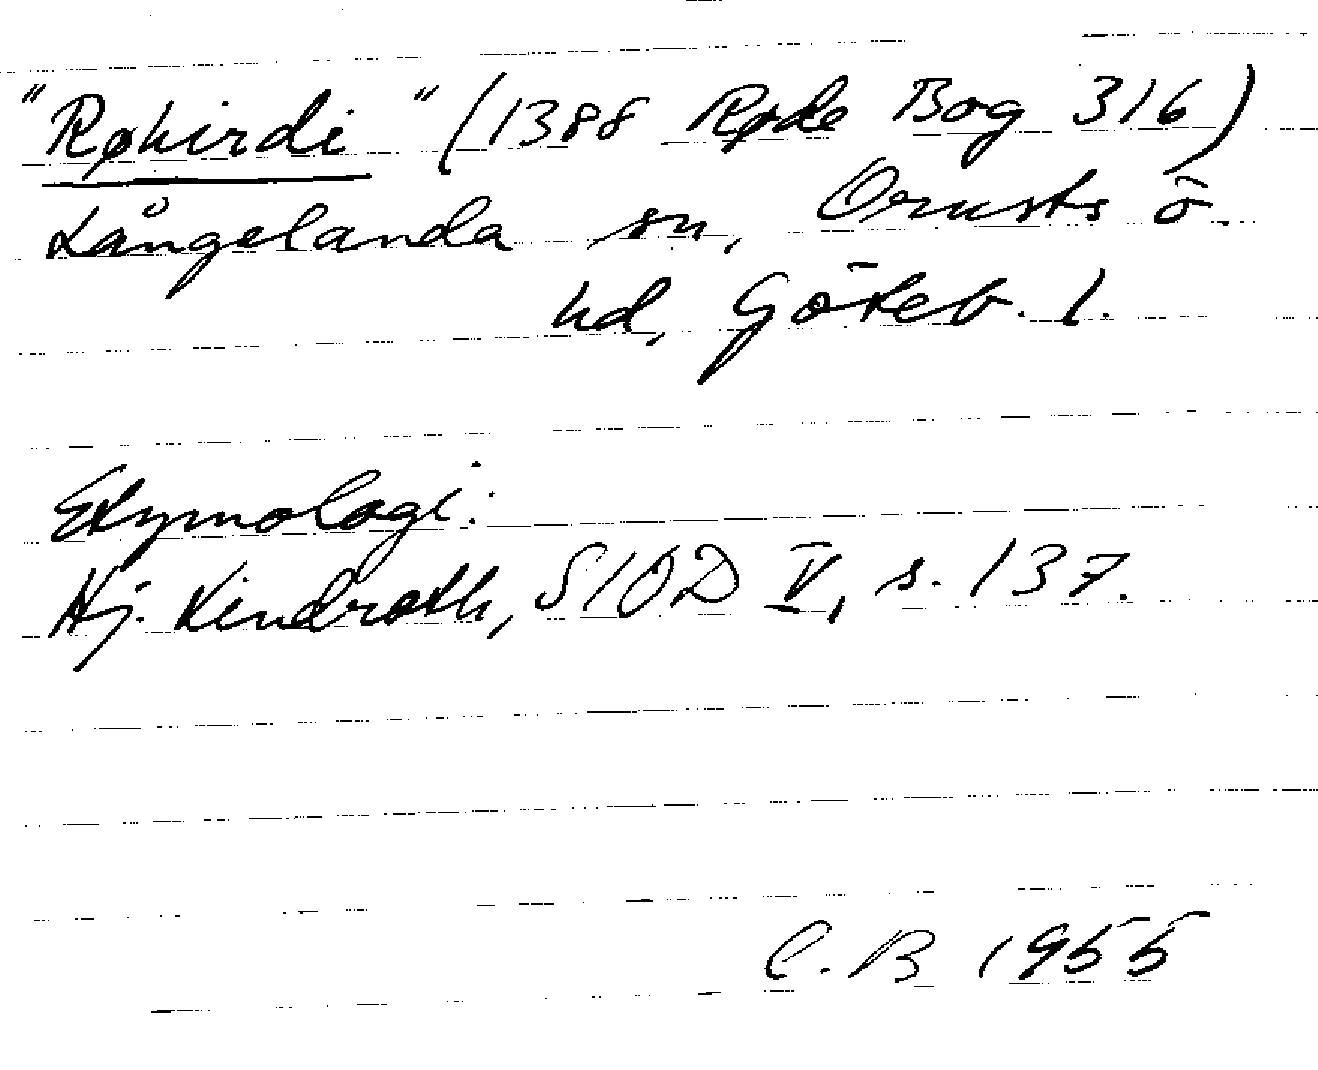 "Røhirdi" (1388 Røde Bog 316)
Långelanda sn, Orusts ö.
hd, Göteb. l.
Etymologi:
Hj. Lindroth, SIOD V, s. 137.
C. B 1955